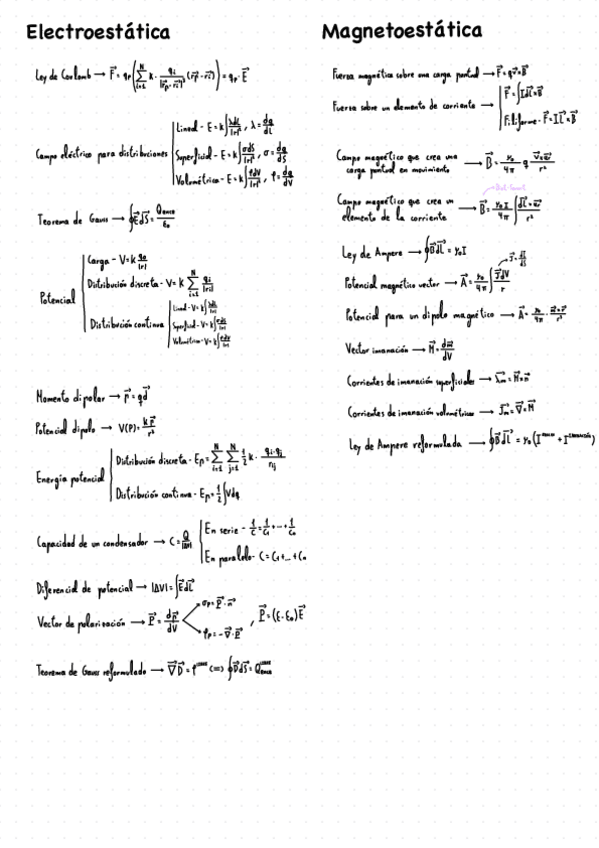 Electroestática
Ley de Coulomb → F⃗ = q_P (∑_{i=1}^{N} k · q_i/|r⃗_P - r⃗_i|³ (r⃗_P - r⃗_i)) = q_P · E⃗
Campo eléctrico para distribuciones
Lineal - E = k∫ λdL/|r|², λ = dq/dL
Superficial - E = k∫ σdS/|r|², σ = dq/dS
Volumétrica - E = k∫ ρdV/|r|², ρ = dq/dV
Teorema de Gauss → ∮E⃗dS⃗ = Q_enc/ε₀
Potencial
Carga - V = k q/|r|
Distribución discreta - V = k ∑_{i=1}^{N} q_i/|r_i|
Distribución continua
Lineal - V = k∫ λdL/|r|
Superficial - V = k∫ σdS/|r|
Volumétrica - V = k∫ ρdV/|r|
Momento dipolar → p⃗ = qd⃗
Potencial dipolo → V(P) = k p⃗/r²
Energía potencial
Distribución discreta - Ep = ∑_{i=1}^{N} ∑_{j=1}^{N} 1/2 k · q_i·q_j/r_ij
Distribución continua - Ep = 1/2 ∫Vdq
Capacidad de un condensador → C = Q/|ΔV|
En serie - 1/C = 1/C₁ + ... + 1/Cₙ
En paralelo - C = C₁ + ... + Cₙ
Diferencial de potencial → |ΔV| = ∫E⃗dL⃗
Vector de polarización → P⃗ = dp⃗/dV
σ_P = P⃗ · n⃗
ρ_P = -∇⃗ · P⃗
, P⃗ = (ε - ε₀)E⃗
Teorema de Gauss reformulado → ∇⃗D⃗ = ρ (⇔) ∮D⃗dS⃗ = Q
Magnetoestática
Fuerza magnética sobre una carga puntual → F⃗ = qv⃗×B⃗
Fuerza sobre un elemento de corriente →
F⃗ = ∫IdL⃗×B⃗
Filiforme - F⃗ = IL⃗×B⃗
Campo magnético que crea una
carga puntual en movimiento → B⃗ = μ₀/4π q v⃗×u⃗/r²
Biot-Savart
Campo magnético que crea un
elemento de la corriente → B⃗ = μ₀I/4π ∫ dL⃗×u⃗/r²
Ley de Ampere → ∮B⃗dL⃗ = μ₀I
Potencial magnético vector → A⃗ = μ₀/4π ∫ J⃗dV/r
Potencial para un dipolo magnético → A⃗ = μ₀/4π · m⃗×r⃗/r³
Vector imanación → M⃗ = dm⃗/dV
Corrientes de imanación superficiales → = M⃗×n⃗
Corrientes de imanación volumétricas → J⃗m = ∇⃗×M⃗
Ley de Ampere reformulada → ∮B⃗dL⃗ = μ₀(I + I^imanación)